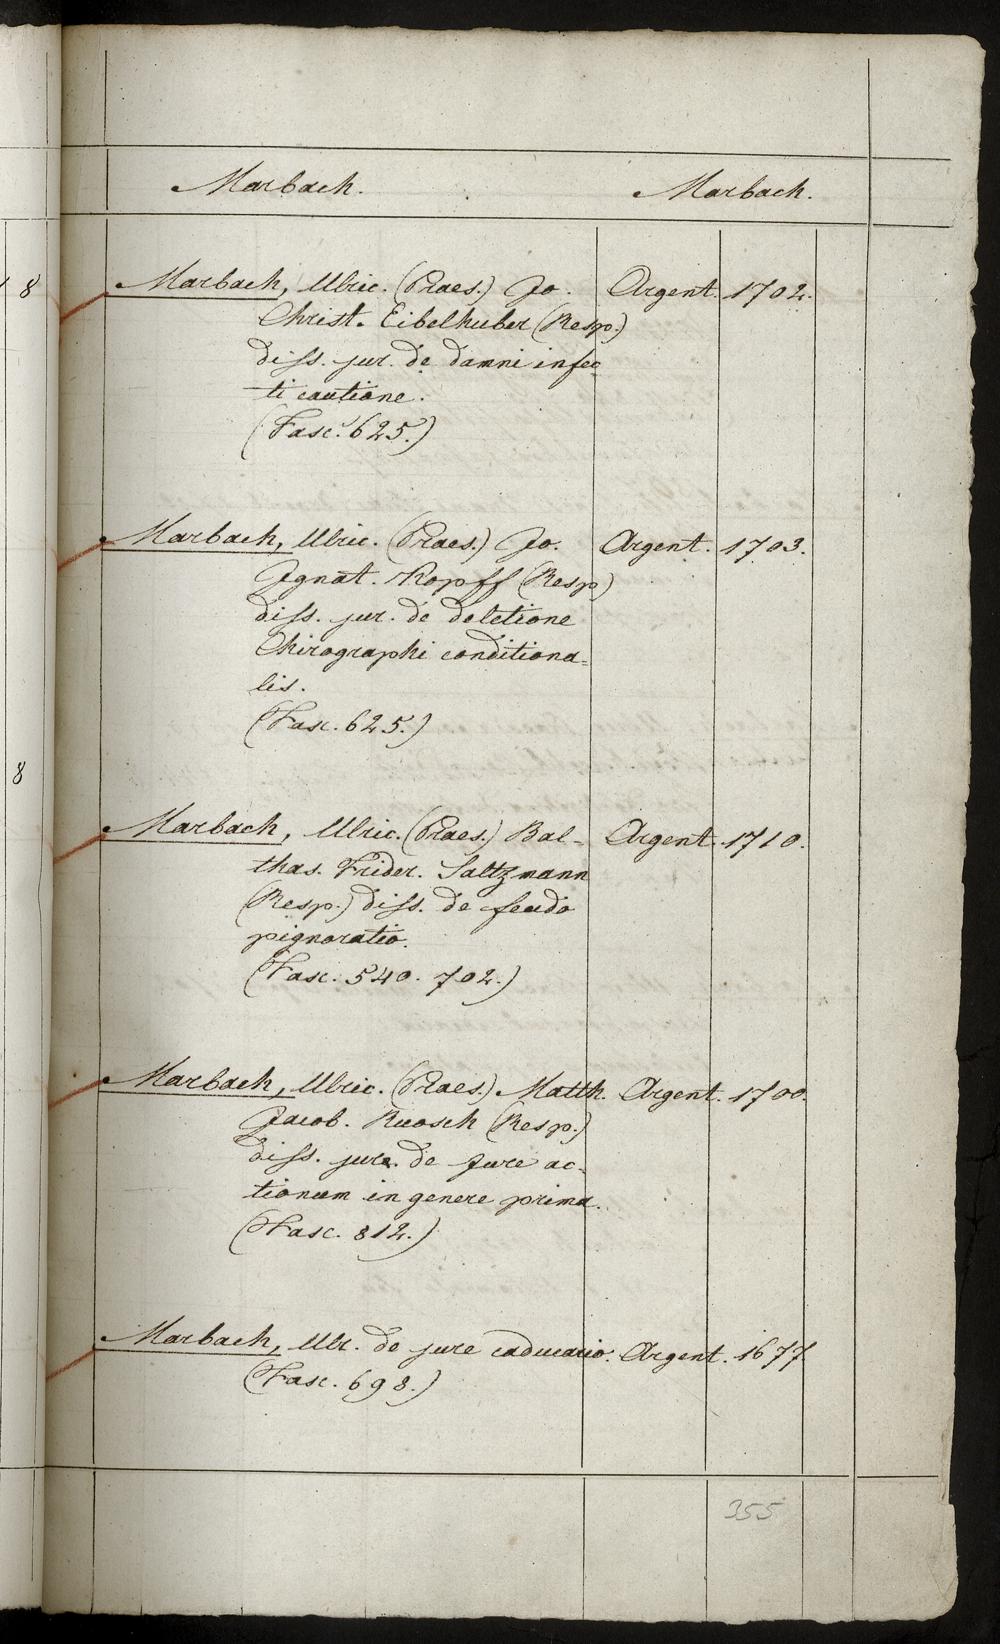 Marbach. Marbach.
8
Marbach, Ulric. (Praes.) Jo. Argent. 1702.
Christ. Eibelhuber (Resp.)
diss. jur. de damni infec-
ti cautione.
(Fasc. 625.)
Marbach, Ulric. (Praes.) Jo. Argent. 1703.
Ignat. Kopff (Resp)
diss. jur. de deletione
Chirographi conditiona=
lis.
(Fasc. 625.)
8
Marbach, Ulric. (Praes.) Bal- Argent. 1710.
thas. Frider. Saltzmann
(Resp.) diss. de feudo
pignoratio.
(Fasc. 540. 702.)
Marbach, Ulric. (Praes.) Matth. Argent. 1700.
Jacob. Ruosch (Resp.)
diss. jura. de Jure ac-
tionum in genere prima.
(Fasc. 812.)
Marbach, Ulr. de jure caducario. Argent. 1677
(Fasc. 698.)
355